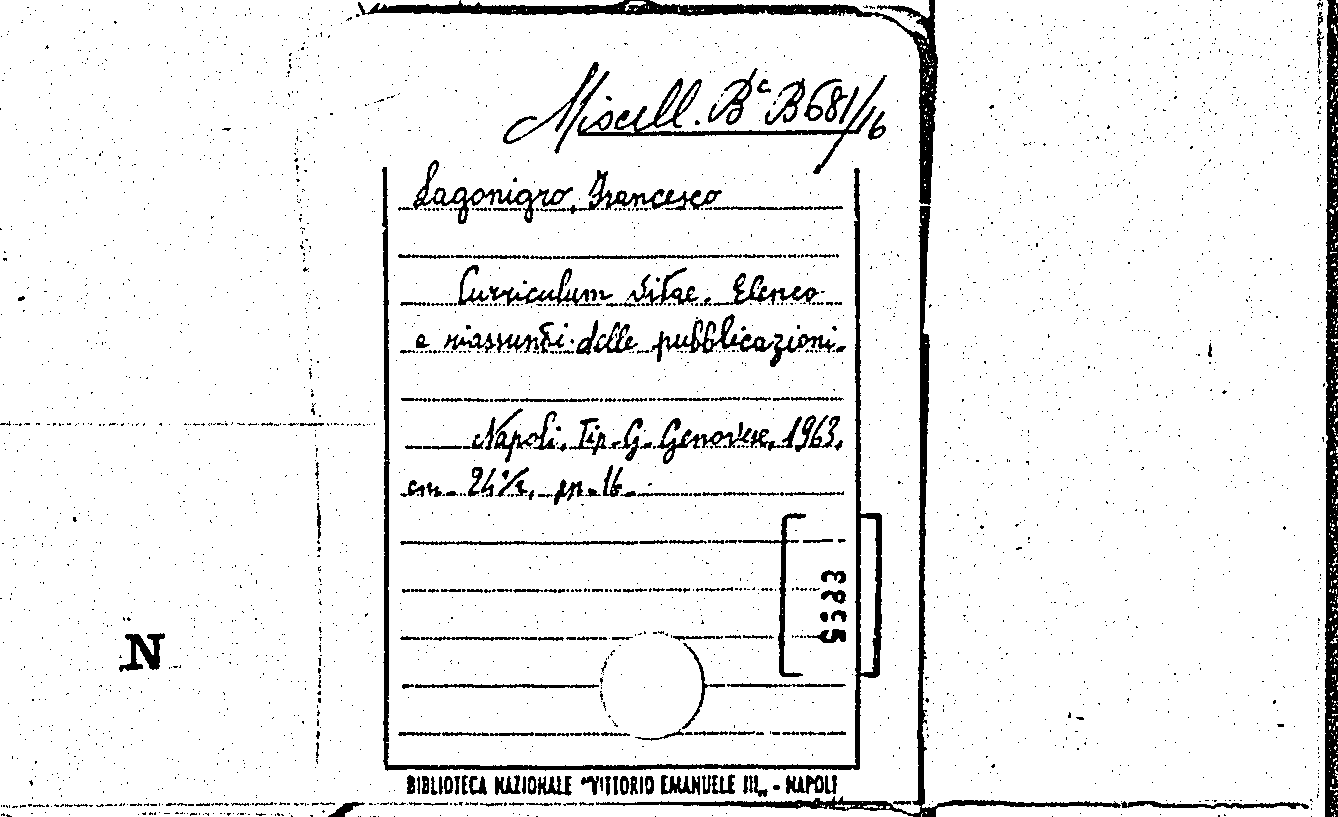 Miscell. Bᶜ B 681/16
Lagonigro, Francesco
Curriculum vitae. Elenco
e riassunti delle pubblicazioni.
Napoli, Tip. G. Genovese, 1963,
cm. 24½, pp. 16.
N
BIBLIOTECA NAZIONALE "VITTORIO EMANUELE III" - NAPOLI